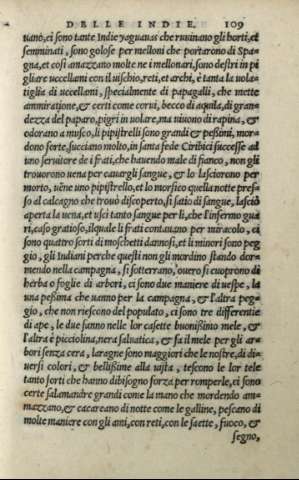 DELLE INDIE. 109
uano, ci sono tante Indie yaguanas che ruuinano gli horti, et
semminati, sono golose per melloni che portarono di Spa-
gna, et cosi amazzano molte ne i mellonari, sono destri in pi
gliare uccellami con il uischio, reti, et archi, è tanta la uola-
tiglia di uccellami, spetialmente di papagalli, che mette
ammiratione, & certi come corui, becco di aquila, di gran-
dezza del paparo, pigri in uolare, ma uiuono di rapina, &
odorano a musco, li pipistrelli sono grandi & pessimi, mor-
dono forte, succiano molto, in santa fede Ciribici successe ad
uno seruitore de i frati, che hauendo male di fianco, non gli
trouorono uena per cauargli sangue, & lo lasciorono per
morto, uéne uno pipistrello, et lo morsico quella notte pres-
so al calcagno che trouò discoperto, si satio di sangue, lasciò
aperta la uena, et usci tanto sangue per li, che l'infermo gua
rì, caso gratioso, ilquale li frati contauano per miracolo, ci
sono quattro sorti di moschetti dannosi, et li minori sono peg
gio, gli Indiani perche questi non gli mordino stando dor-
mendo nella campagna, si sotterrano, ouero si cuoprono di
herba o foglie di arbori, ci sono due maniere di uespe, la
una pessima che uanno per la campagna, & l'altra peg-
gio, che non riescono del populato, ci sono tre differentie
di ape, le due fanno nelle lor casette buonissimo mele, &
l'altra è picciolina, nera saluatica, & fa il mele per gli ar-
bori senza cera, laragne sono maggiori che le nostre, di di-
uersi colori, & bellissime alla uista, tescono le lor tele
tanto forti che hanno dibisogno forza per romperle, ci sono
certe salamandre grandi come la mano che mordendo am-
mazzano, & cacareano di notte come le galline, pescano di
molte maniere con gli ami, con reti, con le saette, fuoco, &
segno,